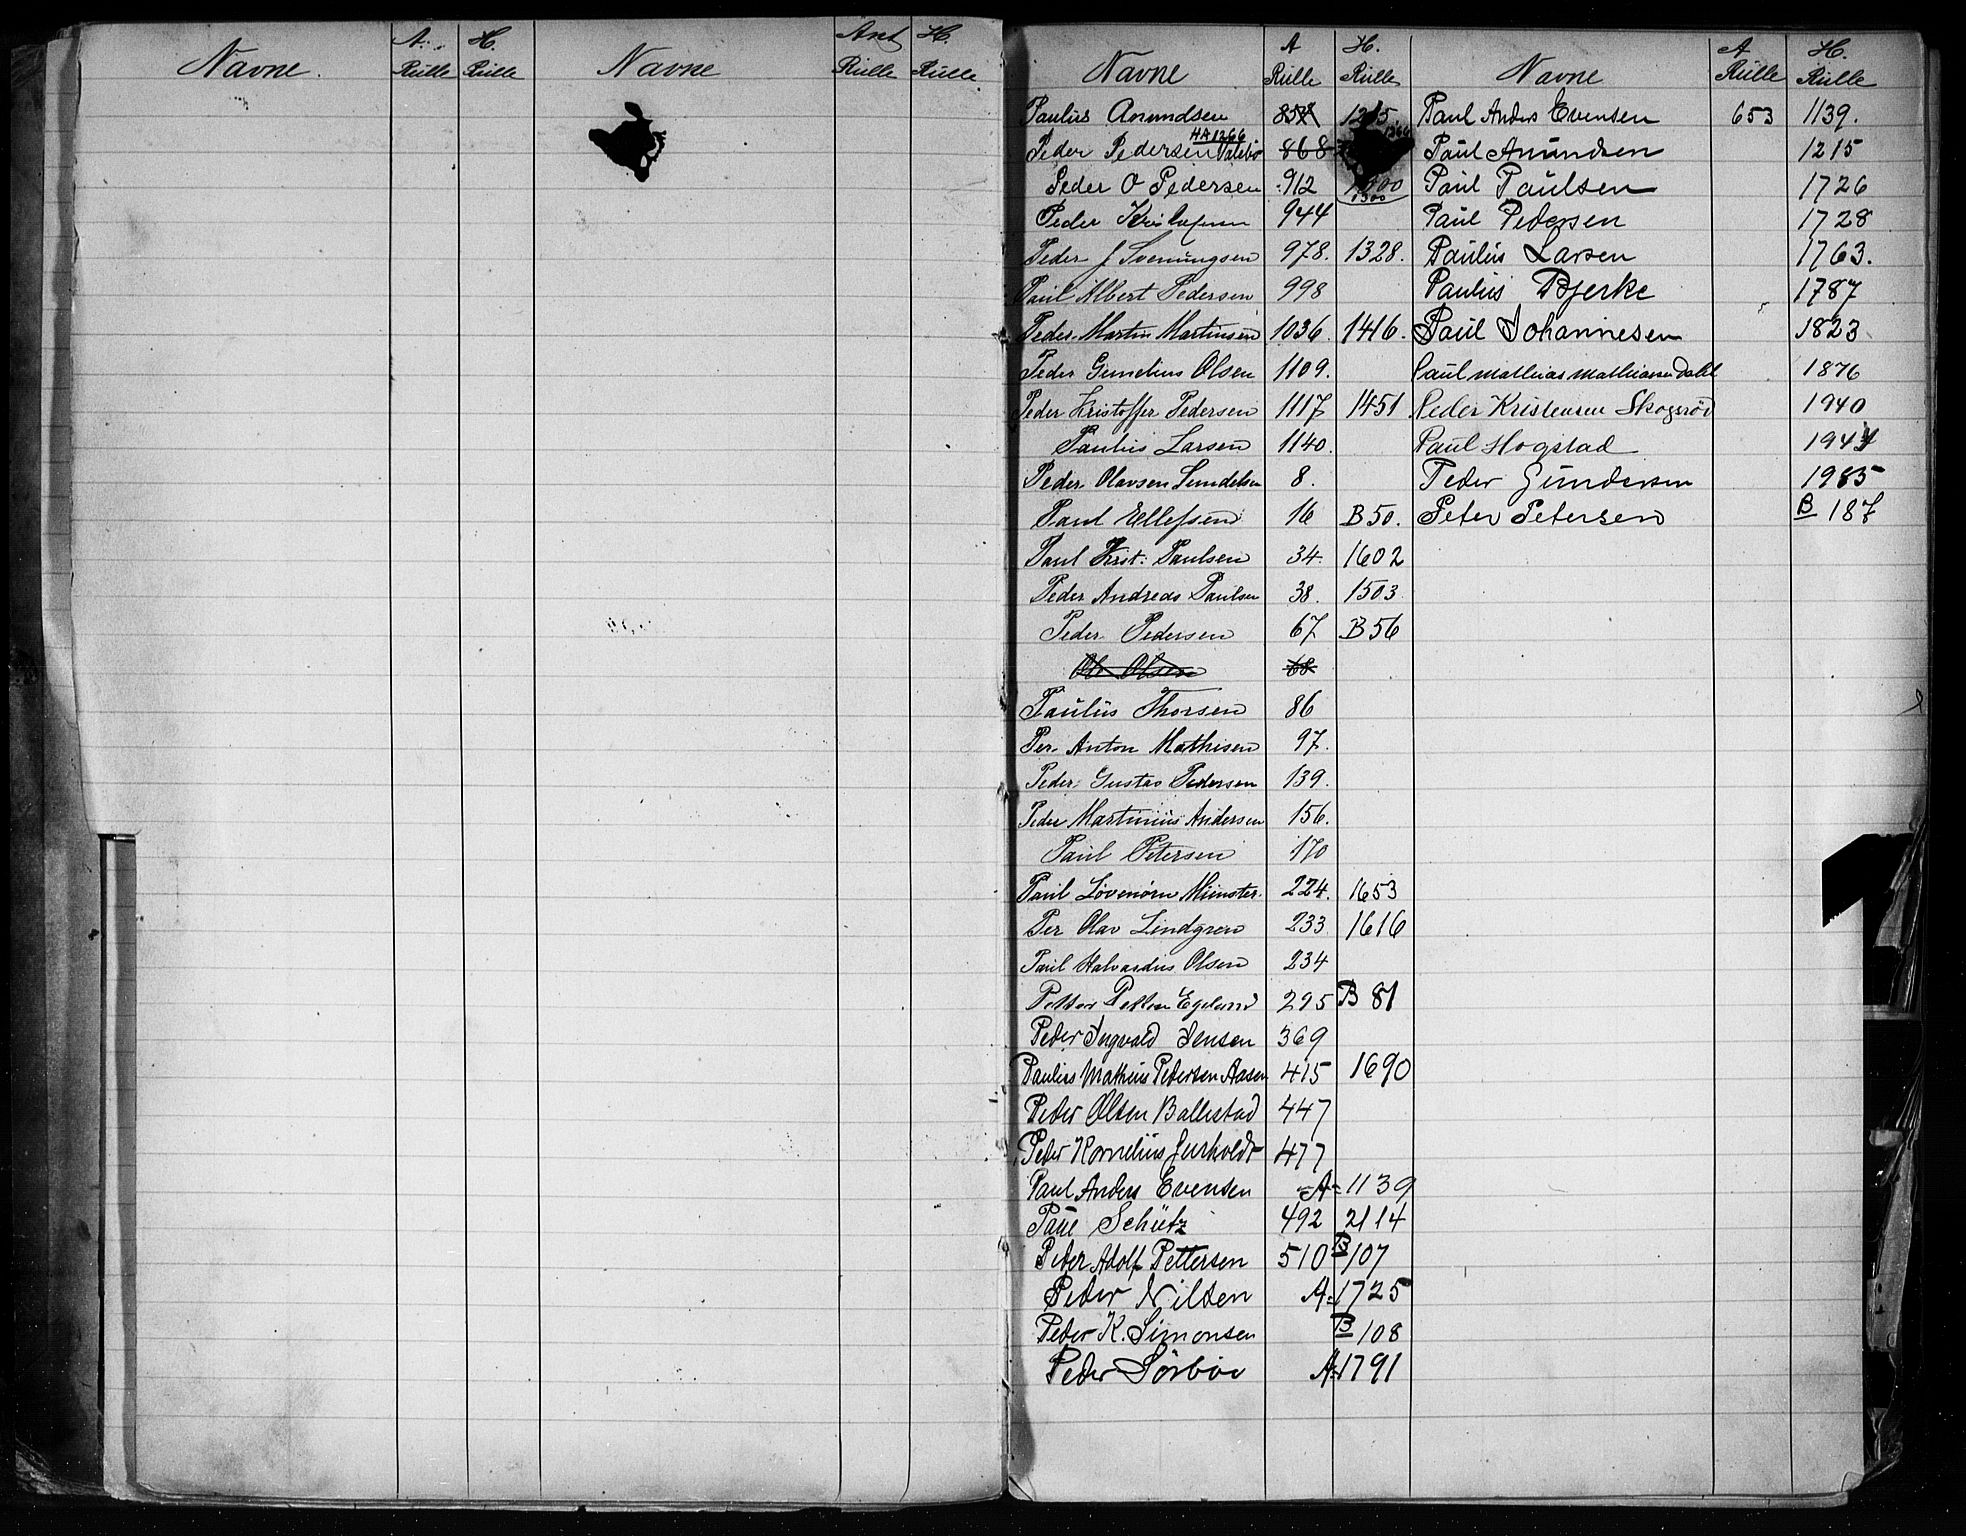 Navne. A. Rulle H. Rulle Navne Ant Rulle H. Rulle
Navne A Rulle H. Rulle Navne A Rulle H. Rulle
Paulus Amundsen 1215. Paul Anders Evensen 653 1139.
HA 1266 1366
Peder Pedersen 868 Paul Amundsen 1215
Peder O Pedersen 912 Paul Paulsen 1726
1300
Peder 944 Paul Pedersen 1728
Peder J Svenungsen 978. 1328. Paulus Larsen 1763.
Paul Albert Pedersen 998 Paulus Bjerke 1787
Peder Martin Martinsen 1036. 1416. Paul Johannesen 1823
Peder Olsen 1109. Paul Mathias Mathiasen Dahl 1876
Peder Kristoffer Pedersen 1117 1451 Peder Kristensen Skogsrød 1940
Paulus Larsen 1140. Paul Hogstad
Peder Olavsen 8. Peder Gundersen 1985
Paul Ellefsen 16 B 50. Peter Petersen B 187
Paul Krist: Paulsen 34. 1602
Peder Andreas Paulsen 38. 1503
Peder Pedersen 67 B 56
Ole Olsen 68
Paulus Thorsen 86
Per Anton Mathisen 97.
Peder Gustav Pedersen 139.
Peder Martinius Andersen 156.
Paul Petersen 170
Paul Løvenørn Münster. 224. 1653
Per Olav Lindgren 233 1616
Paul Halvardus Olsen 234
Petter Petter Egeland 295 B 81
Peder Ingvald Jensen 369
Paulus Mathius Pedersen Aasen 415 1690
Peder Olsen Ballestad 447
Peder Kornelius Gusholdt 477
Paul Anders Evensen A- 1139
Paul Schütz 492 2114
Peder Adolf Pettersen 510 B 107
Peder Nilsen A- 1725
Peder K. Simonsen B 108
Peder Sørbøe A- 1791